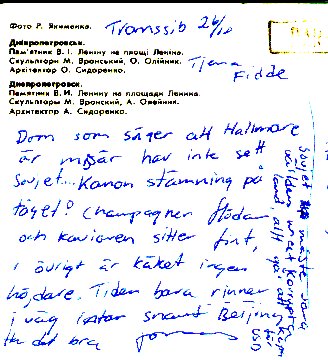 Фото Р. Якименко.
Дніпропетровськ.
Пам'ятник В. І. Леніну на площі Леніна.
Скульптори М. Вронський, О. Олійник.
Архітектор О. Сидоренко.
Днепропетровск.
Памятник В. И. Ленину на площади Ленина.
Скульпторы М. Вронский, А. Олейник.
Архитектор А. Сидоренко.
Transsib 26/10
Tjena
Fidde
Dom som säger att Hallmare
är misär har inte sett
Sovjet... Kanon stämning på
tåget! Champagnen flödar
och kaviaren sitter fint,
i övrigt är käket ingen
höjdare. Tiden bara rinner
iväg snart Beijing
Ha det bra
Sovjet måste vara
världens mest korrupta
land allt går att
för
USD